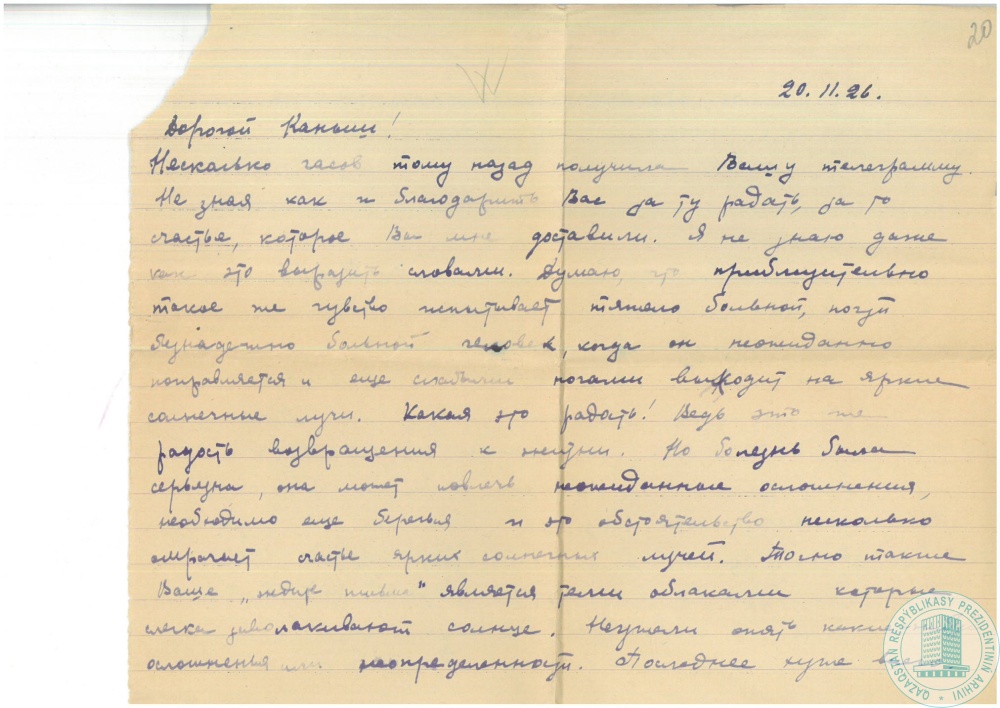 20
20. 11. 26.
Дорогой Каныш!
Несколько часов тому назад получила Вашу телеграмму.
Не зная как и благодарить Вас за ту радать, за то
счастье, которое Вы мне доставили. Я не знаю даже
как это выразить словами. Думаю, что приблизительно
такое же чувство испытывает тяжело больной, почти
безнадежно больной человек, когда он неожиданно
поправляется и еще слабыми ногами выходит на яркие
солнечные лучи. Какая это радать! Ведь это же
радость возвращения к жизни. Но болезнь была
серьезна, она может повлечь неожиданные осложнения,
необходимо еще беречься и это обстоятельство несколько
омрачает счастье ярких солнечных лучей. Точно также
Ваше „ждите письма" является теми облаками которые
слегка заволакивают солнце. Неужели опять какие
осложненья или неопределенности. Последнее хуже
QAZAQSTAN RESPÝBLIKASY PREZIDENTINIŃ ARHIVI